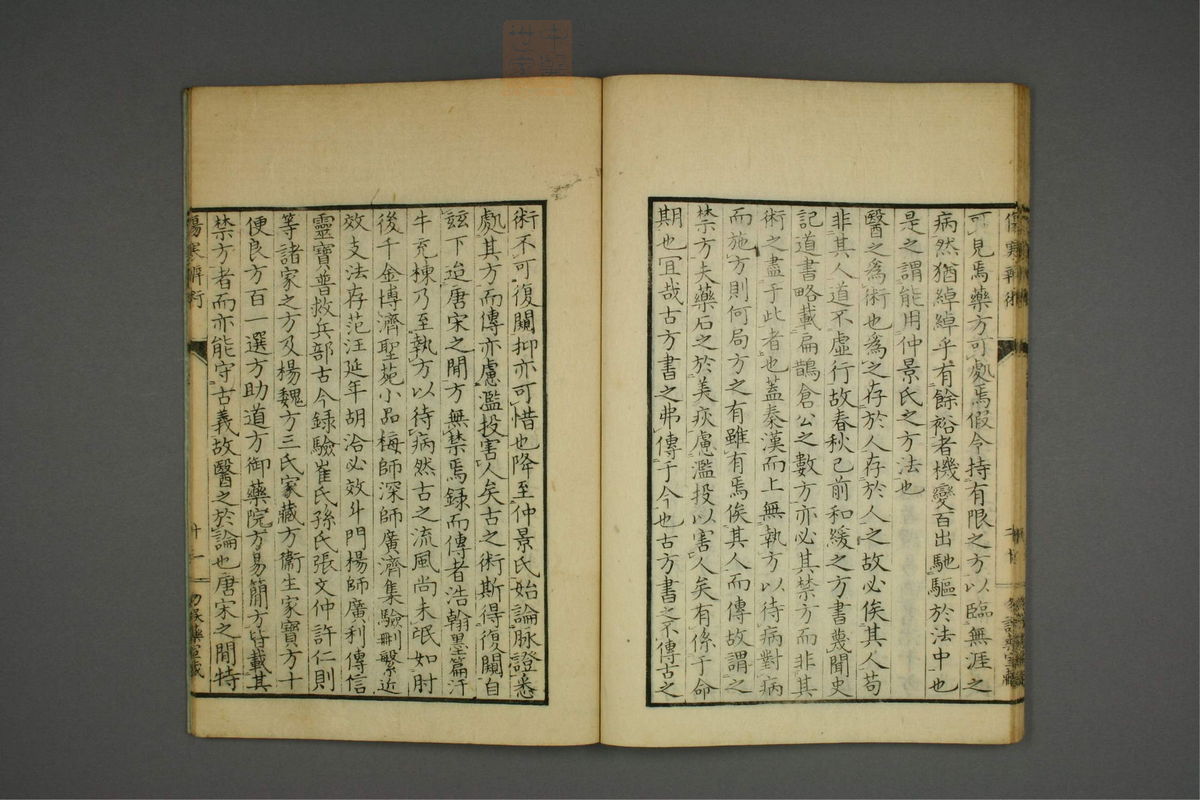 可見焉藥方可處焉假令持有限之方以臨無涯之
病然猶綽綽乎有餘裕者機變百出馳驅於法中也
是之謂能用仲景氏之方法也
醫之爲術也爲之存於人存於人之故必俟其人苟
非其人道不虛行故春秋已前和緩之方書蔑聞史
記道書略載扁鵲倉公之數方亦必其禁方而非其
術之盡于此者也蓋秦漢而上無執方以待病對病
而施方則何局方之有雖有焉俟其人而傳故謂之
禁方夫藥石之於美疢慮濫投以害人矣有係于命
期也宜哉古方書之弗傳于今也古方書之不傳古之
術不可復闚抑亦可惜也降至仲景氏始論脉證悉
處其方而傳亦慮濫投害人矣古之術斯得復闚自
玆下迨唐宋之間方無禁焉録而傳者浩翰墨篇汗
牛充棟乃至執方以待病然古之流風尚未氓如肘
後千金博濟聖苑小品梅師深師廣濟集驗刪繁近
效支法存范汪延年胡洽必效斗門楊師廣利傳信
靈寶普救兵部古今録驗崔氏孫氏張文仲許仁則
等諸家之方及楊魏方三氏家藏方衞生家寶方十
便良方百一選方助道方御藥院方易簡方皆載其
禁方者而亦能守古義故醫之於論也唐宋之間特
傷寒辨術
十一